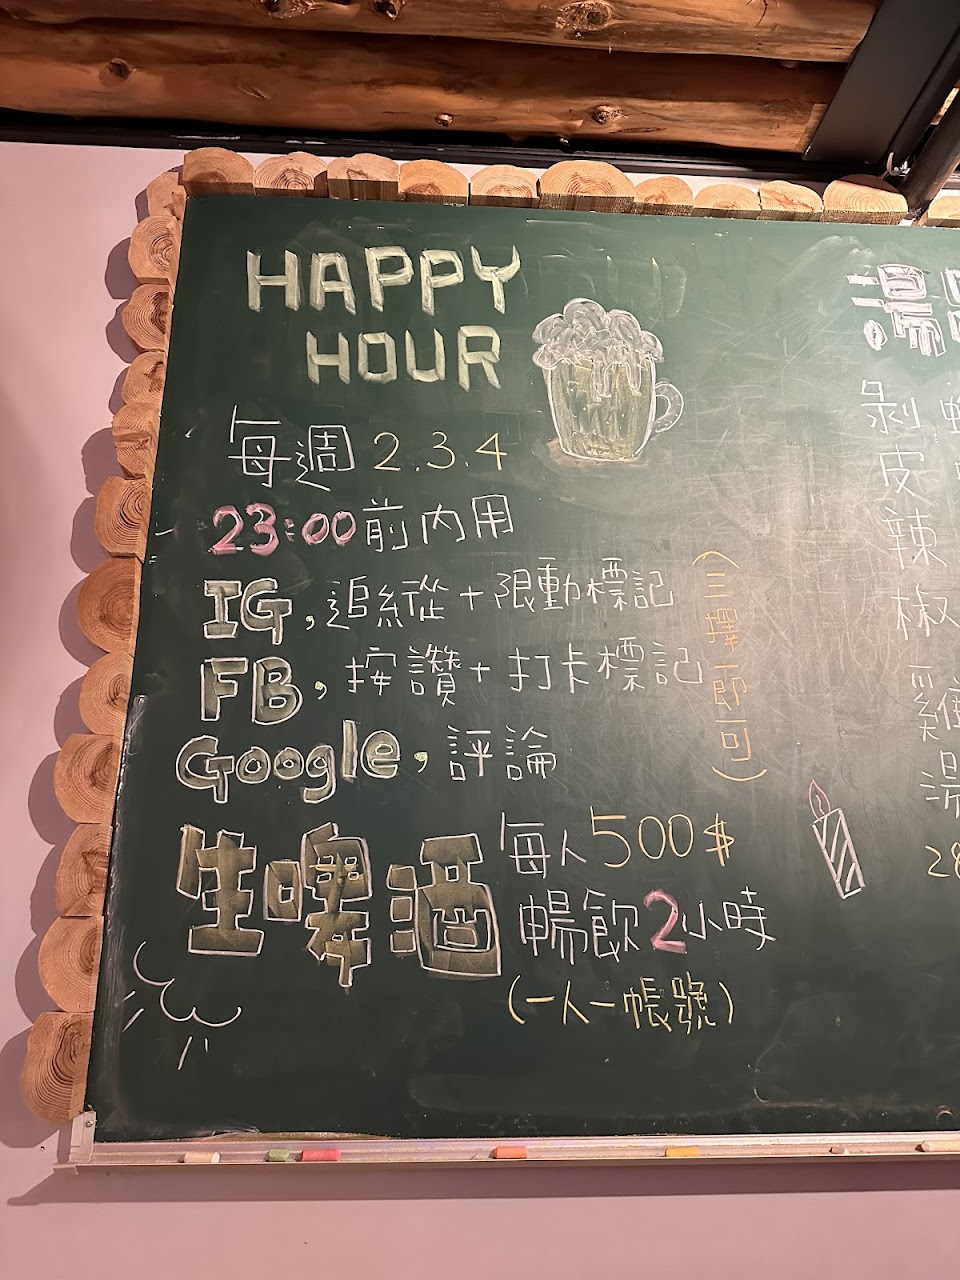 HAPPY
HOUR
每週 2.3.4
23:00前內用
IG,追縱+限動標記
FB,按讚+打卡標記
Google,評論
(三擇一即可)
生啤酒
每人500$
暢飲2小時
(一人一帳號)
剝皮辣椒
雞
湯
28